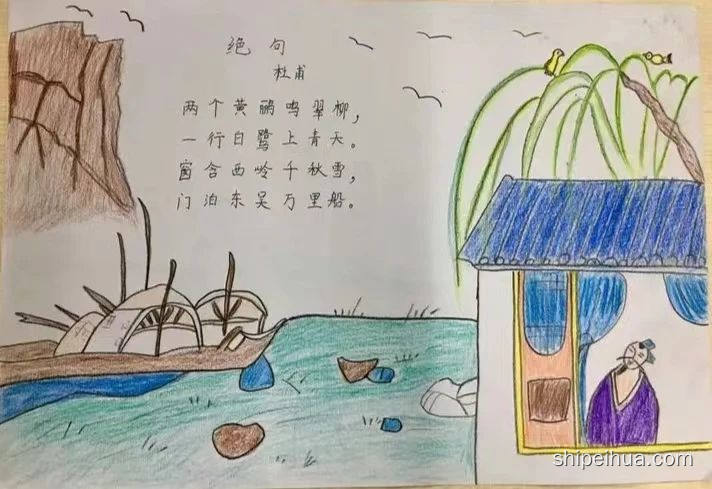 绝句
杜甫
两个黄鹂鸣翠柳，
一行白鹭上青天。
窗含西岭千秋雪，
门泊东吴万里船。
shipeihua.com